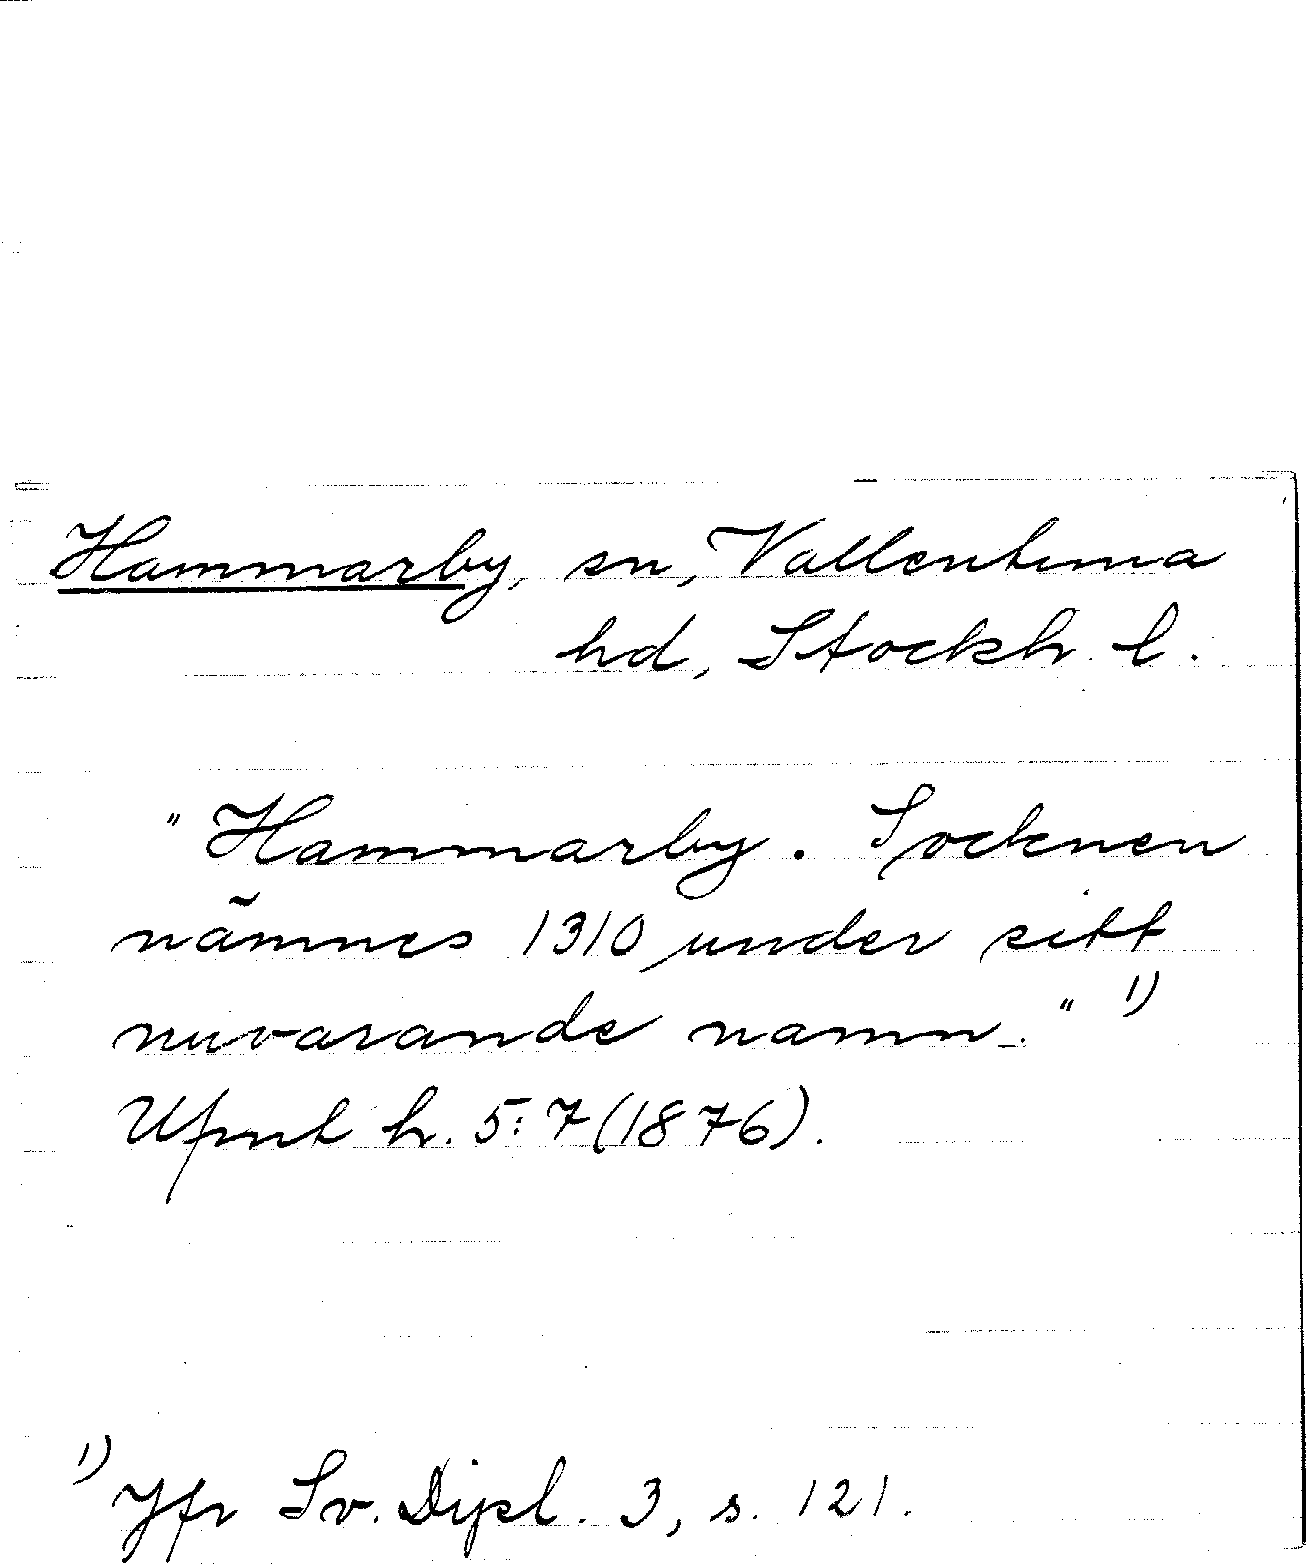 Hammarby, sn, Vallentuna
hd, Stockh. l.
"Hammarby. Socknen
nämnes 1310 under sitt
nuvarande namn." 1)
Upmt h. 5:7 (1876).
1) Jfr Sv. Dipl. 3, s. 121.